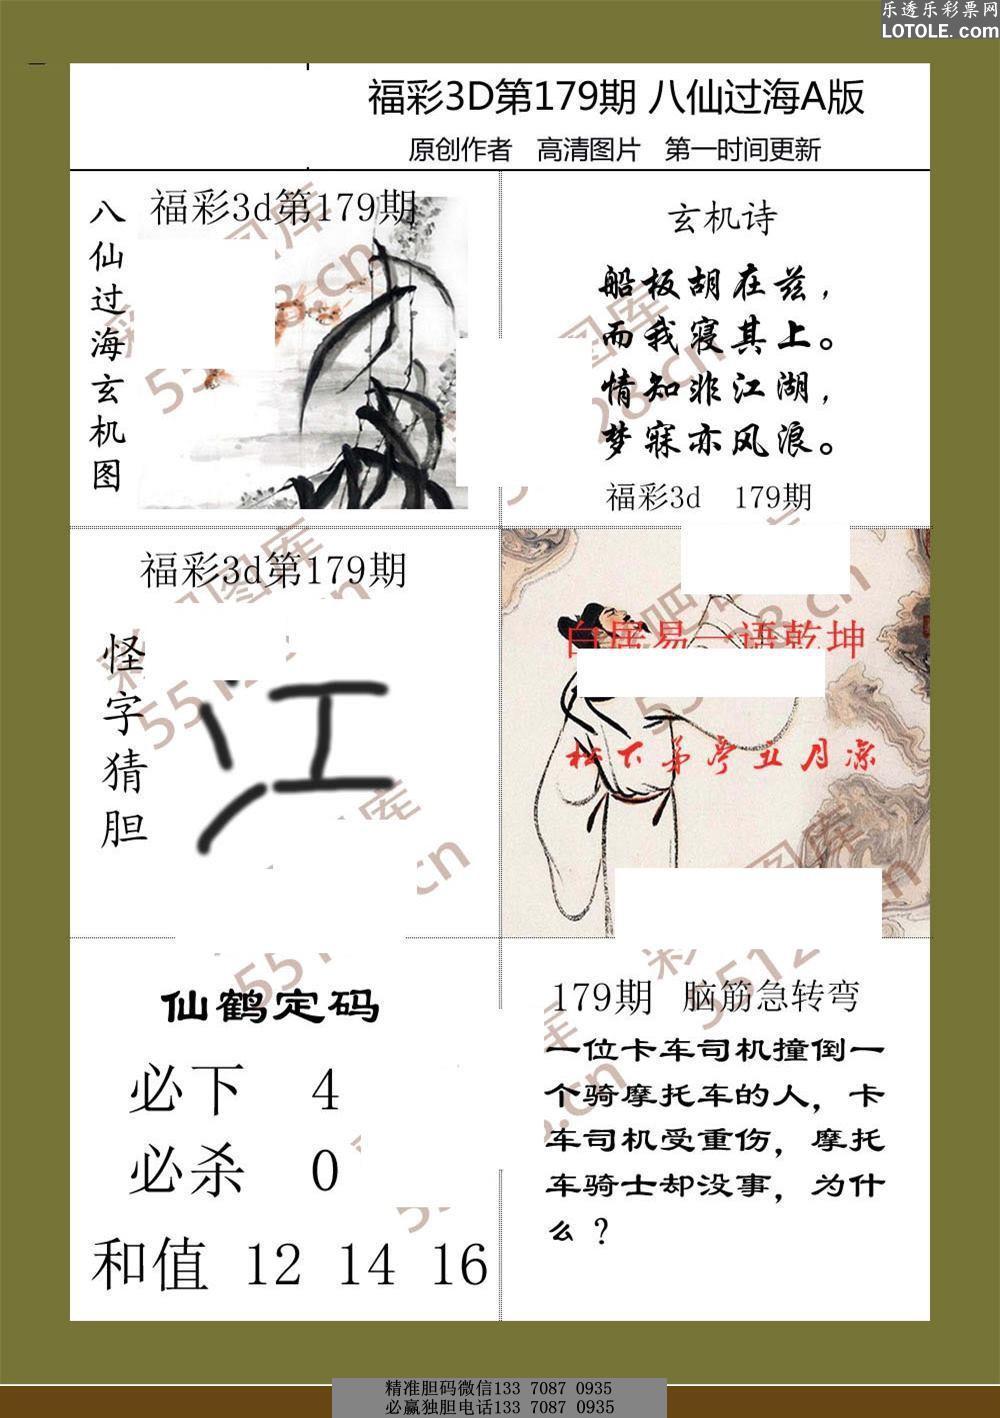 乐透乐彩票网
LOTOLE.com
福彩3D第179期 八仙过海A版
原创作者 高清图片 第一时间更新
八仙过海玄机图
福彩3d第179期
玄机诗
船板胡在兹，
而我寝其上。
情知非江湖，
梦寐亦风浪。
福彩3d 179期
福彩3d第179期
怪字猜胆
江
白居易一语乾坤
松下茅亭五月凉
仙鹤定码
必下 4
必杀 0
和值 12 14 16
179期 脑筋急转弯
一位卡车司机撞倒一
个骑摩托车的人，卡
车司机受重伤，摩托
车骑士却没事，为什
么？
精准胆码微信133 7087 0935
必赢独胆电话133 7087 0935